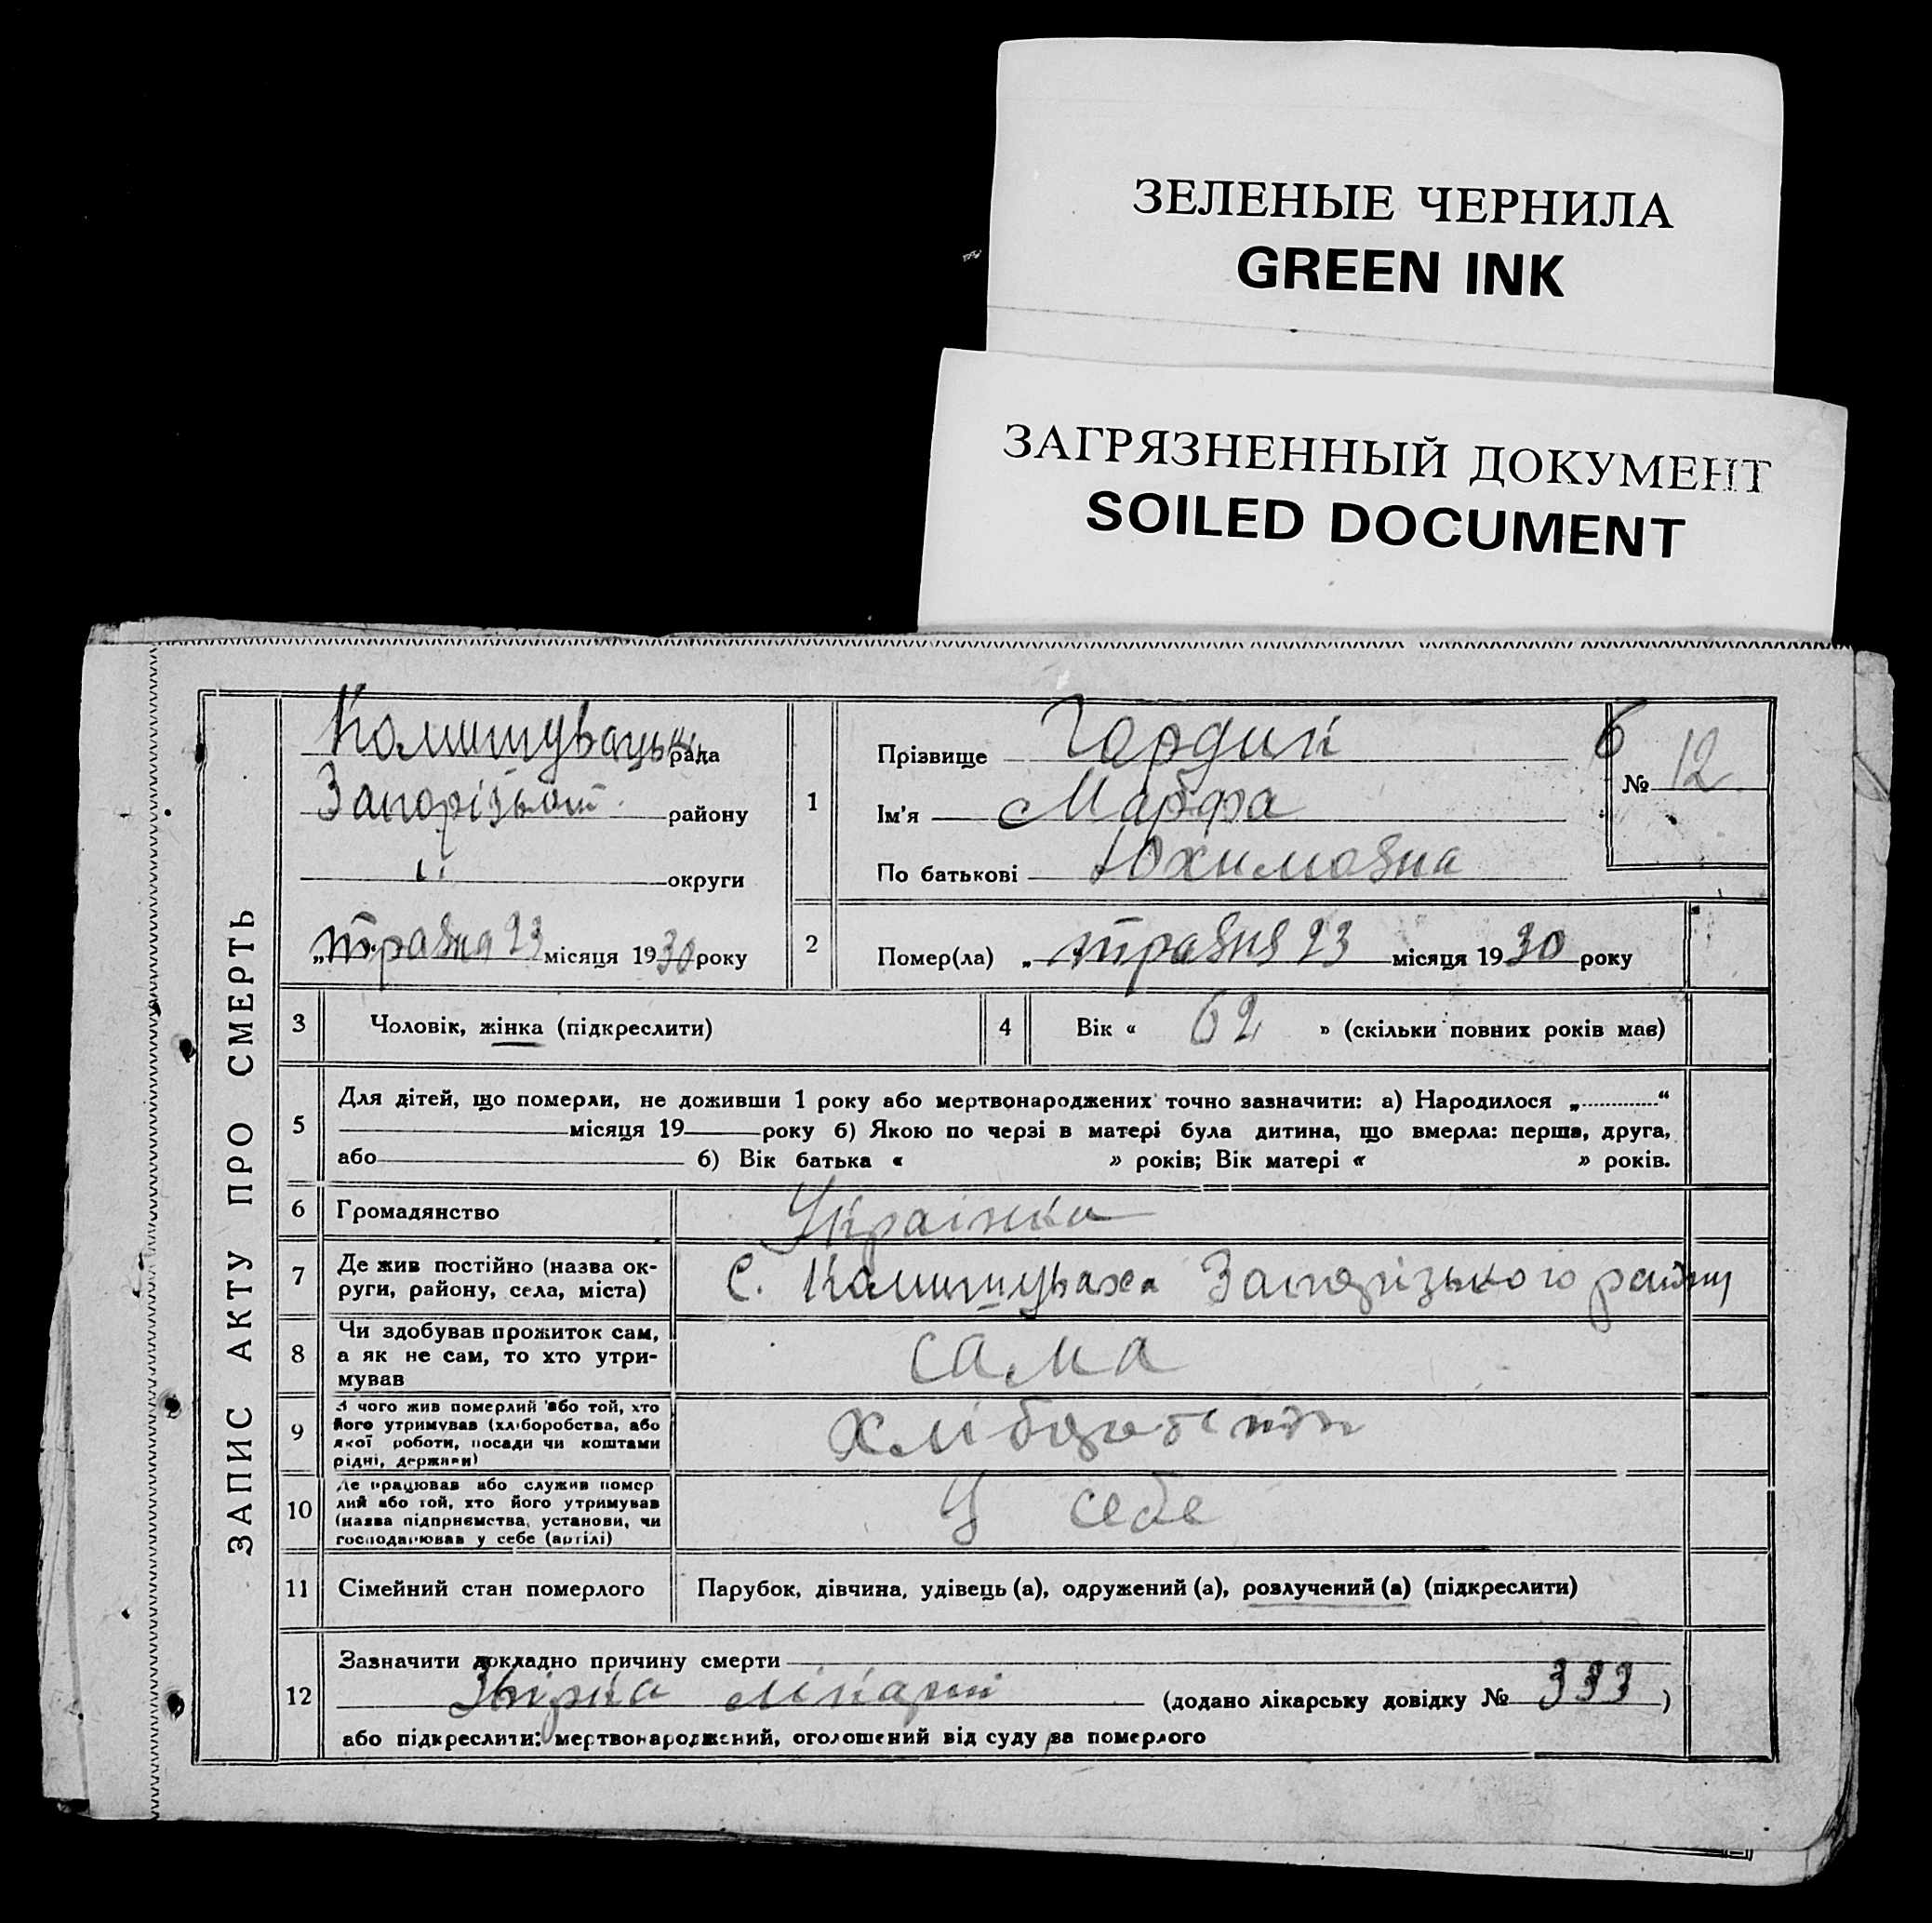 ЗЕЛЕНЫЕ ЧЕРНИЛА
GREEN INK
ЗАГРЯЗНЕННЫЙ ДОКУМЕНТ
SOILED DOCUMENT
ЗАПИС АКТУ ПРО СМЕРТЬ
рада
району
округи
„травня 23 місяця 1930 року
1
Прізвище Гордик
Ім'я Марфа
По батькові Юхимовна
6
№ 12
2
Помер(ла) „травня 23 місяця 1930 року
3 Чоловік, жінка (підкреслити)
4 Вік « 62 » (скільки повних років мав)
5 Для дітей, що померли, не доживши 1 року або мертвонароджених точно зазначити: а) Народилося „ “
місяця 19 року б) Якою по черзі в матері була дитина, що вмерла: перша, друга,
або б) Вік батька « » років; Вік матері « » років.
6 Громадянство Українка
7 Де жив постійно (назва ок-
руги, району, села, міста) С. Комишуваха Запорізького району
8 Чи здобував прожиток сам,
а як не сам, то хто утри-
мував сама
9 З чого жив померлий або той, хто
його утримував (хліборобства, або
якої роботи, посади чи коштами
рідні, держави)
10 Де працював або служив помер
лий або той, хто його утримував
(назва підприємства, установи, чи
господарював у себе (артілі) У себе
11 Сімейний стан померлого Парубок, дівчина, удівець (а), одружений (а), розлучений (а) (підкреслити)
12 Зазначити докладно причину смерти
(додано лікарську довідку № 333 )
або підкреслити: мертвонароджений, оголошений від суду за померлого